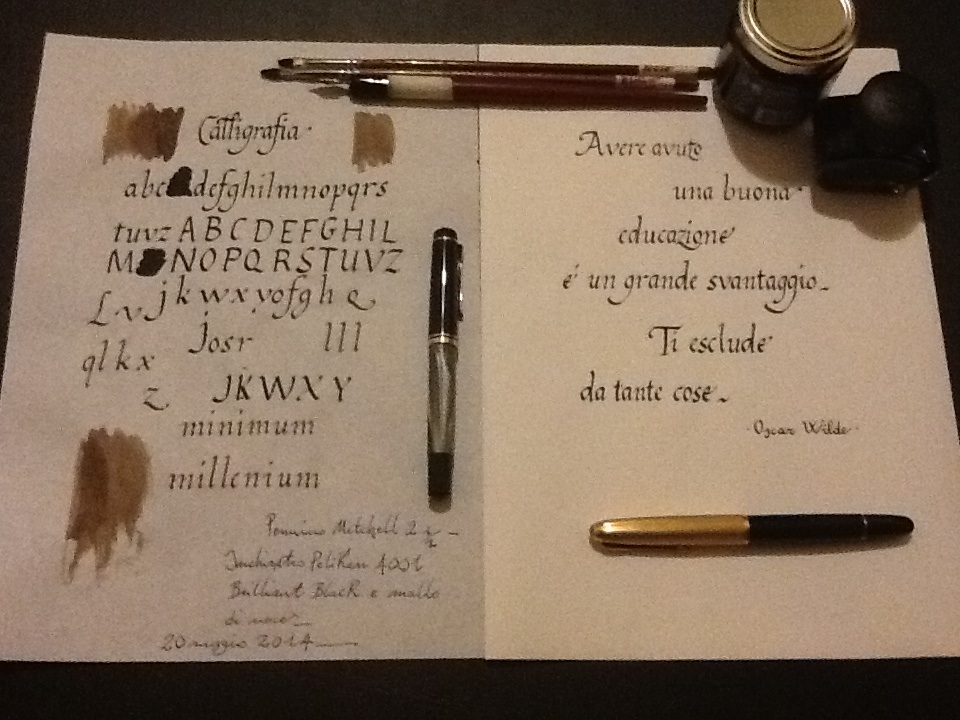 Calligrafia.
abc defghilmnopqrs
tuvz ABCDEFGHIL
M NOPQRSTUVZ
L v j k w x y o f g h Q
josr lll
ql k x
z JKWXY
minimum
millenium
Pennino Mitchell 2 ½ –
Inchiostro Pelikan 4001
Brilliant Black e mallo
di noce
20 maggio 2014
Avere avuto
una buona
educazione
é un grande svantaggio
Ti esclude
da tante cose
Oscar Wilde